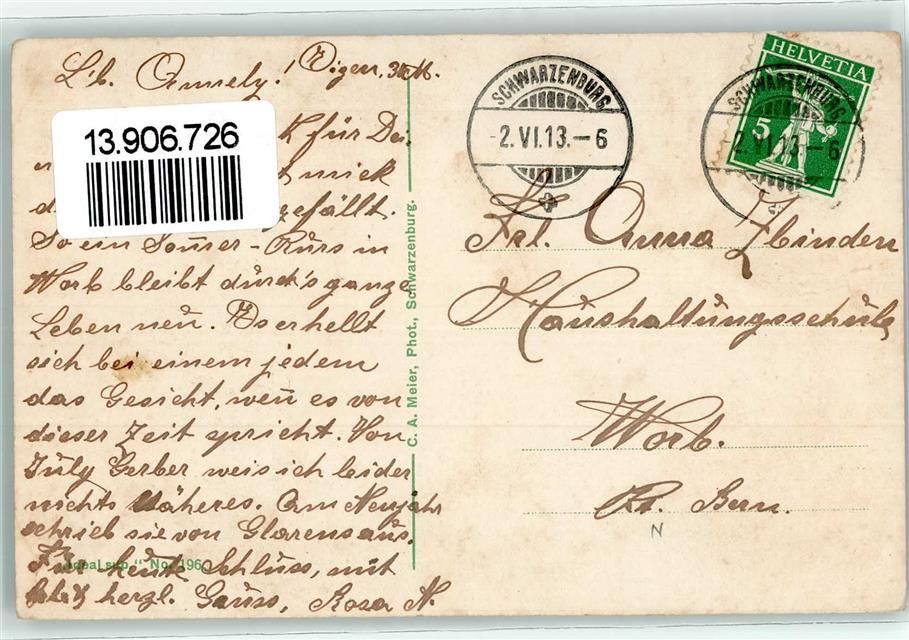 Lb. Annely!
13.906.726
k für Dei
mich
gefällt.
So ein Somer-Kurs in
Worb bleibt durch's ganze
Leben neu. Es erhellt
sich bei einem jedem
das Gesicht, wen es von
dieser Zeit spricht. Von
July Gerber weis ich leider
nichts Näheres. Am Neujahr
schrieb sie von Glarens aus.
Für heute Schluss, mit
herzl. Gruss, Rosa N.
"Ideal sup." No. 196
C. A. Meier, Phot., Schwarzenburg.
SCHWARZENBURG
-2.VI.13.-6
HELVETIA
5
SCHWARZENBURG
2.VI.13.-6
Frl. Anna Zbinden
Haushaltungsschule
Worb.
Kt. Bern.
N